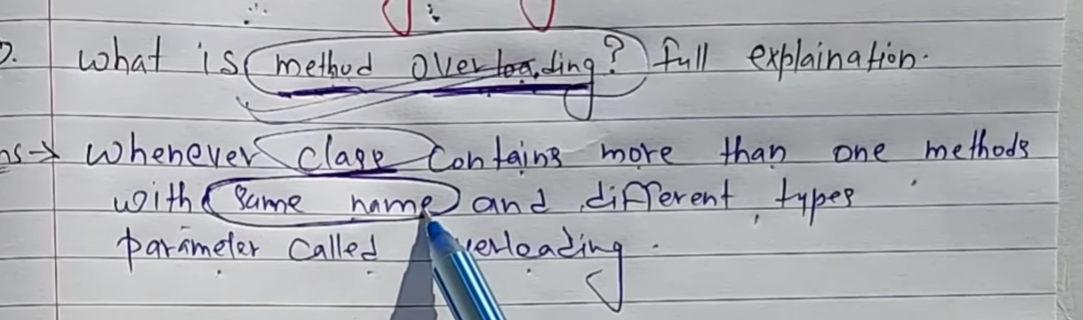 What is method overloading? full explaination.
ns→ Whenever class contains more than one methods
with same name and different types
parameter called verloading.